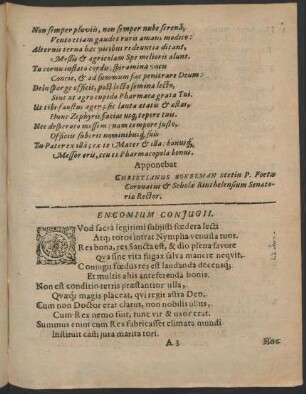 Non semper pluviis, non semper nube serenâ,
Vento etiam gaudet ruris amans medico:
Alternis terna hæc vicibus redeuntia ditant,
Messis & agricolam Spe melioris alunt.
Tu cornu inflato cordis, spiramina vocis
Concie, & ad summum fac penitrare Deum:
Dein sparge officii, post lecto semina lecto,
Sint ut agro cupido Pharmaca grata Tui.
Ut tibi faustus ager, sic lauta ætatis & æstas,
Hunc Zephyris facias usq; tepere tuis.
Nec desperato messem: nam tempore justo,
Officiis fuberit nominibusq; suis
Tu Pater ex illâ; ex te Mater & illa: bonusq;
Messor eris, ceu es Pharmacopola bonus.
Apponebat
CHRISTIANUS BOKELMAN P. Poeta
Coronatus & Scholæ Rinthelensium Senato-
ria Rector.
ENCOMIUM CONJUGII.
QVod sacra legitimi subjisti fœdera lecti
Atq; toros intrat Nympha venusta tuos.
Res bona, res Sancta est, & dio plena favore
Qua sine vita fugax salva manere nequit.
Conjugii fœdus res est laudanda decensq;
Et multis aliis anteferenda bonis.
Non est conditio tetris præstantior ulla,
Quæq; magis placeat, qui regit astra Deo.
Cum non Doctor erat clarus, non nobilis ullus,
Cum Rex nemo fuit, tunc vir & uxor erat.
Summus enim cum Rex fabricasset climata mundi
Instituit casti jura marita tori.
A 3